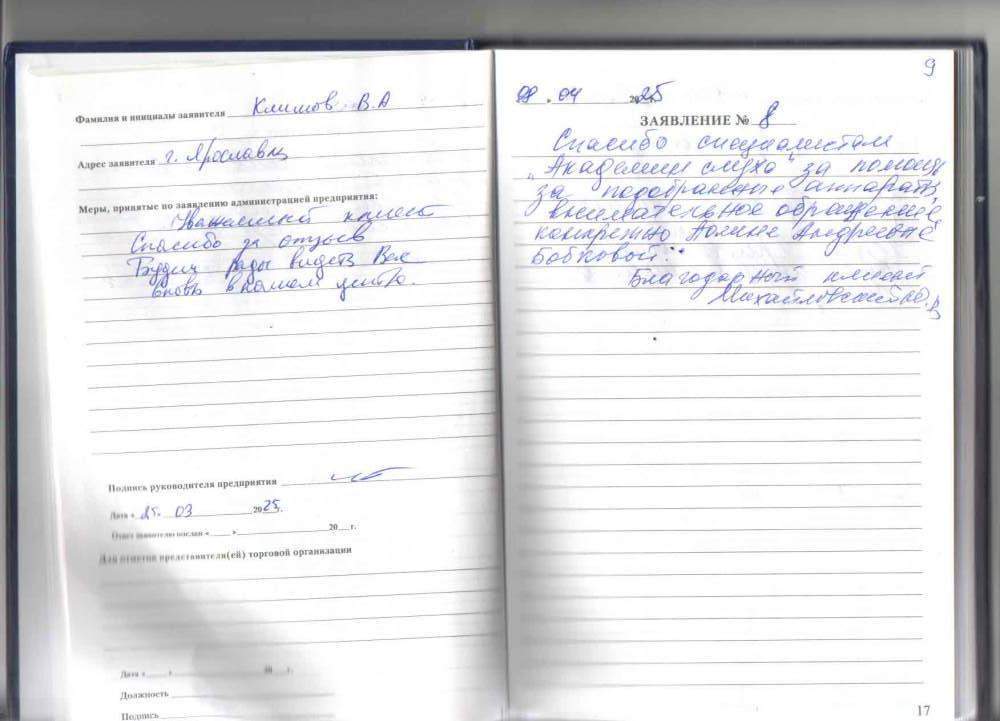 Фамилия и инициалы заявителя Климов В.А
Адрес заявителя г. Ярославль
Меры, принятые по заявлению администрацией предприятия:
Уважаемый клиент
Спасибо за отзыв
Будем рады видеть Вас
вновь в нашем центре.
Подпись руководителя предприятия
Дата « 25. 03 2025г.
Ответ заявителю послан « » 20 г.
Для отметки представителя(ей) торговой организации
Дата « » 20 г.
Должность
Подпись
9
09 . 04 2025г.
ЗАЯВЛЕНИЕ № 8
Спасибо специалистам
„Академии слуха" за помощь
за подобранные аппараты,
внимательное обращение
конкретно Полине Андреевне
Бобковой.
Благодарный клиент
17